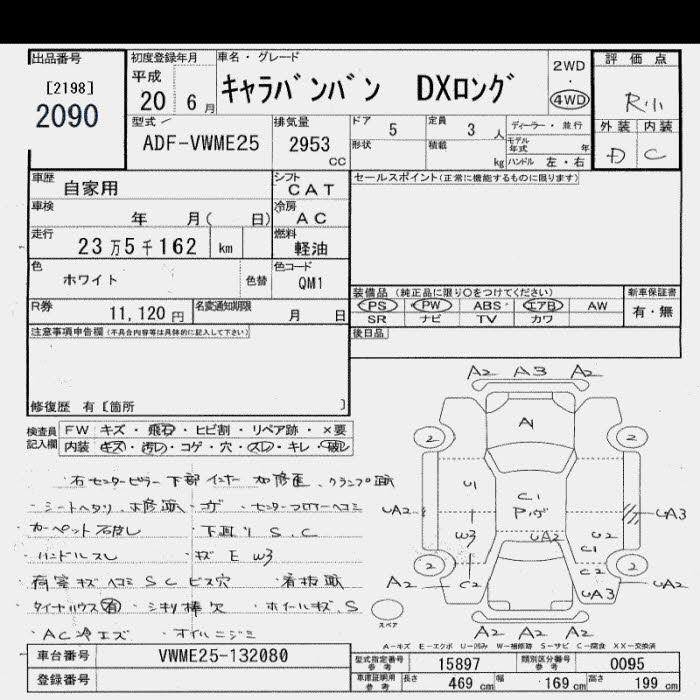 出品番号
[2198]
2090
初度登録年月
平成
20 6月
車名・グレード
キャラバンバン DXロング
2WD
・
4WD
評価点
R小
外装 内装
D C
型式
ADF-VWME25
排気量
2953
CC
ドア
5
定員
3 人
ディーラー・並行
形状
積載
kg
モデル年式 年
ハンドル 左・右
車歴
自家用
シフト
CAT
セールスポイント(正常に機能するものに限ります)
車検
年 月( 日)
冷房
AC
走行
23万5千162 km
燃料
軽油
色
ホワイト
色替
色コード
QM1
装備品 (純正品に限り○をつけてください)
新車保証書
PS PW ABS エアB AW
SR ナビ TV カワ
有・無
R券
11,120円
名変通知期限
月 日
注意事項申告欄(不具合内容等は具体的に記入して下さい)
後日品
修復歴 有 [箇所 ]
検査員記入欄
FW キズ・飛石・ヒビ割・リペア跡・×要
内装 キズ・汚レ・コゲ・穴・スレ・キレ・破レ
・右センターピラー下部インナー 加修歴、クランプ跡
・シートヘタリ
・センターフロアーヘコミ
・カーペット 汚レ
・下廻り S.C
・ハンドルスレ
・キズ E W3
・荷室 キズ ヘコミ S C ビス穴
・看板跡
・タイヤハウス 有
・シキリ棒欠
・ホイールキズ、S
・AC冷エズ
・オイルニジミ
A2 A3 A2
2 2
A
U1
C1
UA2
UA3
W3
UA2
U2
C1
2 2
A2
C2
C2
UA2
UA3
スペア
A2 A2 A2
A-キズ E-エクボ U-凹み W-補修跡 S-サビ C-腐食 XX-交換済
車台番号
VWME25-132080
型式指定番号
参考
15897
類別区分番号
参考
0095
登録番号
車庫証明用
参考
長さ 469 cm 幅 169 cm 高さ 199 cm